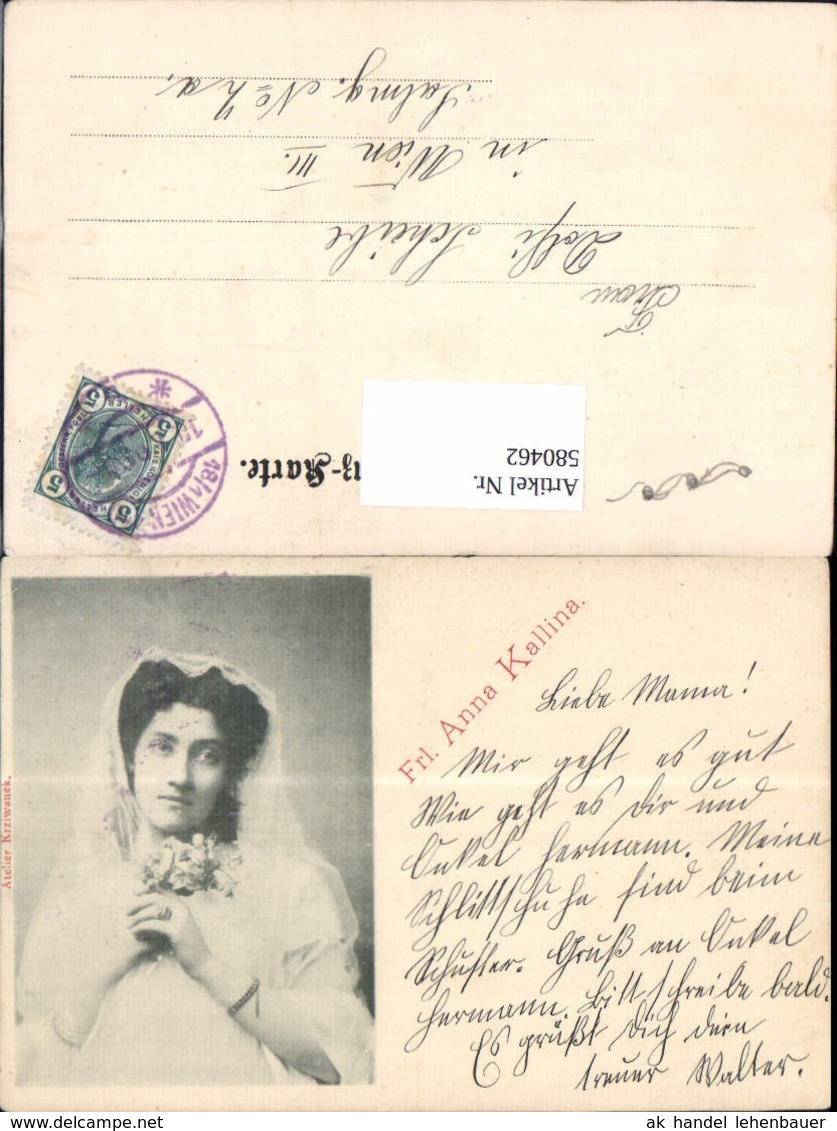 Frau
Dolfi Scheibe
in Wien III.
Salmg. No
Artikel Nr.
580462
-Karte.
5 5
5 5
HELLER
18/1 WIEN
*
Frl. Anna Kallina.
Atelier Krziwanek.
Liebe Mama!
Mir geht es gut
Wie geht es Dir und
Onkel Hermann. Meine
Schlittschuhe sind beim
Schuster. Gruß an Onkel
Hermann. Bitt schreibe bald.
Es grüßt Dich dein
treuer Walter.
ak handel lehenbauer